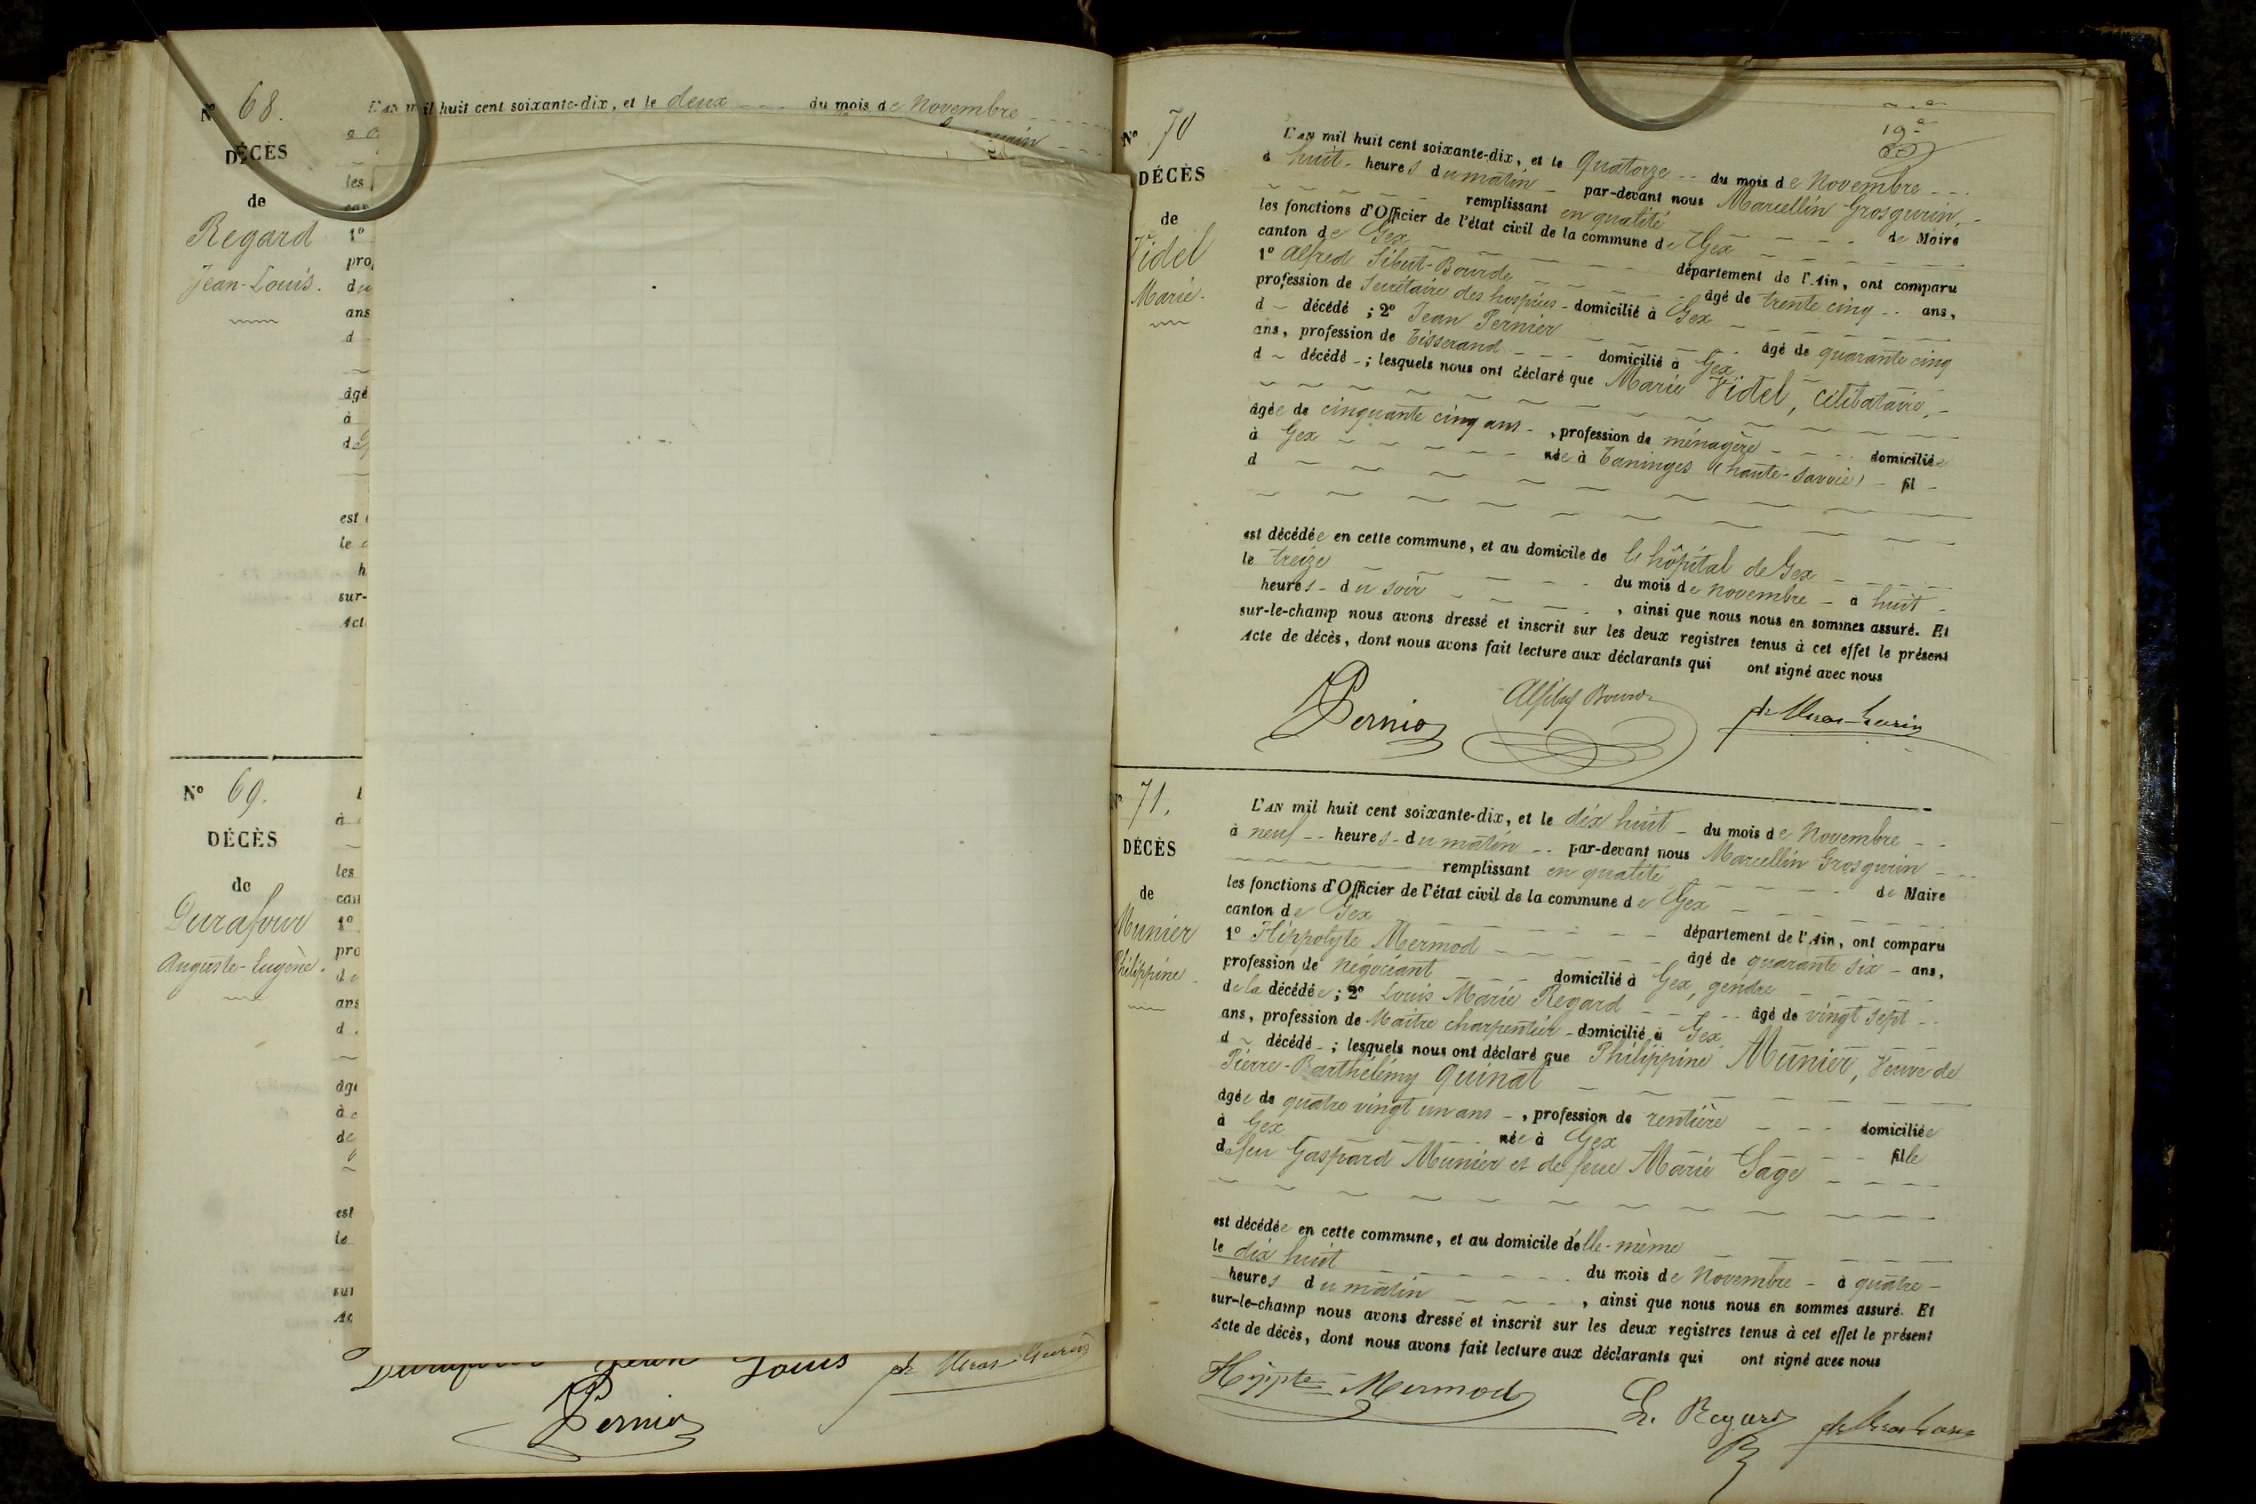 N° 68.
DÉCÈS
de
Regard
Jean-Louis.
L'AN mil huit cent soixante-dix, et le deux du mois de Novembre
les
1°
pro
du
ans
d
âgé
à
de
est
le
h
sur-
Act
N° 69.
DÉCÈS
de
Durafour
Auguste-Eugène.
à
les
can
1°
pro
de
ans
d
âgé
à
de
est
le
sur
Ac
Louis
Pernier
19e
N° 70
DÉCÈS
de
Videl
Marie.
L'AN mil huit cent soixante-dix, et le Quatorze du mois de Novembre
à huit heures du matin par-devant nous Marcellin Grosgurin,
remplissant en qualité de Maire
les fonctions d'Officier de l'état civil de la commune de Gex
canton de Gex département de l'Ain, ont comparu
1° Alfred Sibut-Bourde âgé de trente cinq ans,
profession de Secrétaire des hospices domicilié à Gex
d décédé ; 2° Jean Pernier âgé de quarante cinq
ans, profession de Tisserand domicilié à Gex
d décédé ; lesquels nous ont déclaré que Marie Videl, célibataire,
âgée de cinquante cinq ans, profession de ménagère domiciliée
à Gex née à Taninges (haute-Savoie) fil
d
est décédée en cette commune, et au domicile de l'hôpital de Gex
le treize du mois de Novembre à huit
heures du soir, ainsi que nous nous en sommes assuré. Et
sur-le-champ nous avons dressé et inscrit sur les deux registres tenus à cet effet le présent
Acte de décès, dont nous avons fait lecture aux déclarants qui ont signé avec nous
Pernier
N° 71.
DÉCÈS
de
Munier
Philippine.
L'AN mil huit cent soixante-dix, et le dix huit du mois de Novembre
à neuf heures du matin par-devant nous Marcellin Grosgurin
remplissant en qualité de Maire
les fonctions d'Officier de l'état civil de la commune de Gex
canton de Gex département de l'Ain, ont comparu
1° Hippolyte Mermod âgé de quarante six ans,
profession de Négociant domicilié à Gex, gendre
de la décédée ; 2° Louis Marie Regard âgé de vingt sept
ans, profession de Maître charpentier domicilié à Gex
d décédé ; lesquels nous ont déclaré que Philippine Munier, Veuve de
Pierre-Barthélemy Quinat
âgée de quatre vingt un ans, profession de rentière domiciliée
à Gex née à Gex fille
de feu Gaspard Munier et de feue Marie Sage
est décédée en cette commune, et au domicile d'elle-même
le dix huit du mois de Novembre à quatre
heures du matin, ainsi que nous nous en sommes assuré. Et
sur-le-champ nous avons dressé et inscrit sur les deux registres tenus à cet effet le présent
Acte de décès, dont nous avons fait lecture aux déclarants qui ont signé avec nous
Hippte Mermod
L. Regard